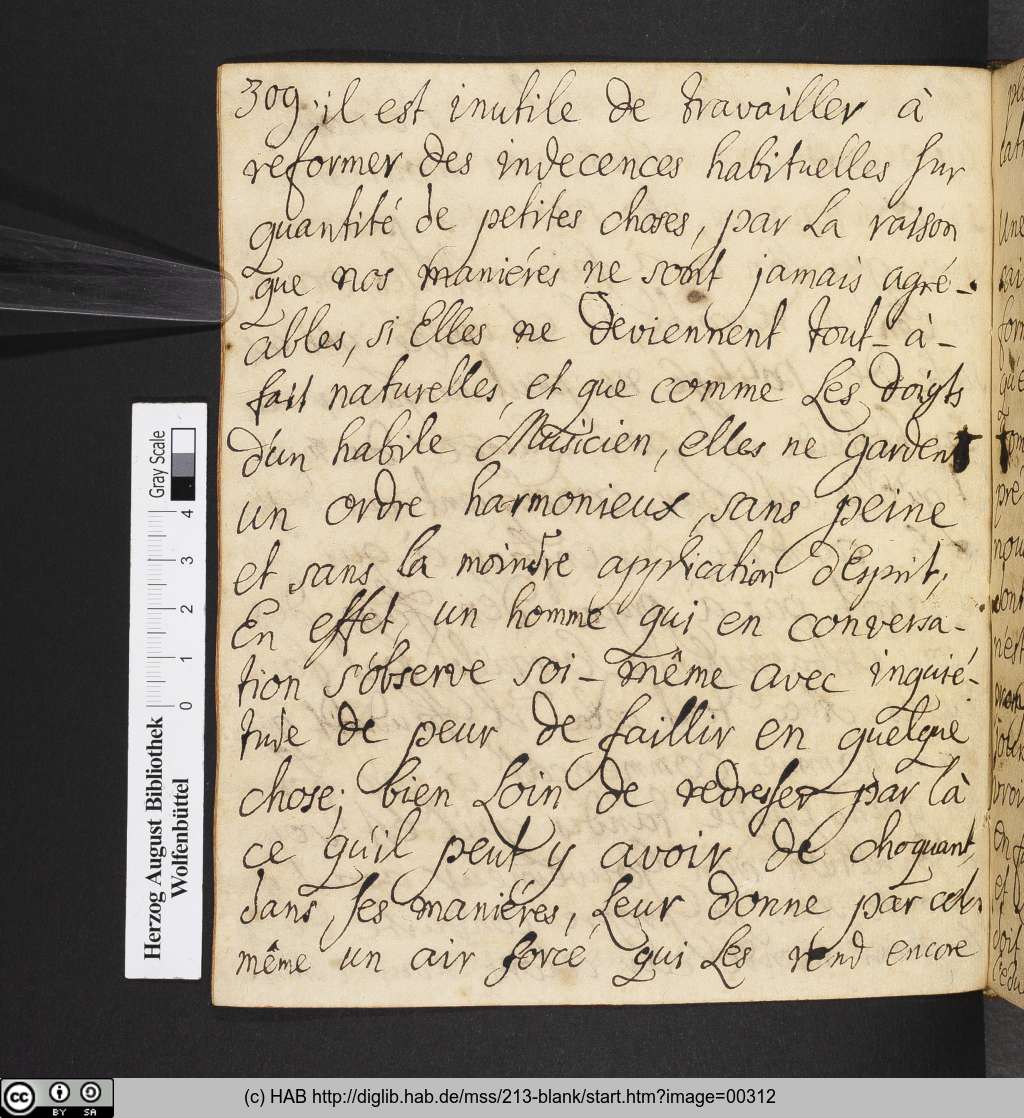 309. il est inutile de travailler à
reformer des indecences habituelles sur
quantité de petites choses, par La raison
que nos maniéres ne sont jamais agré-
ables, si Elles ne deviennent tout-à-
fait naturelles, et que comme Les doigts
d'un habile Musicien, elles ne gardent
un ordre harmonieux sans peine
et sans la moindre application d'Esprit,
En effet, un homme qui en conversa-
tion s'observe soi-même avec inquié-
tude de peur de faillir en quelque
chose; bien Loin de redresser par là
ce qu'il peut y avoir de choquant,
dans ses maniéres, Leur donne par cela
même un air forcé qui Les rend encore
Herzog August Bibliothek
Wolfenbüttel
Gray Scale
0 1 2 3 4
(c) HAB http://diglib.hab.de/mss/213-blank/start.htm?image=00312
cc BY SA